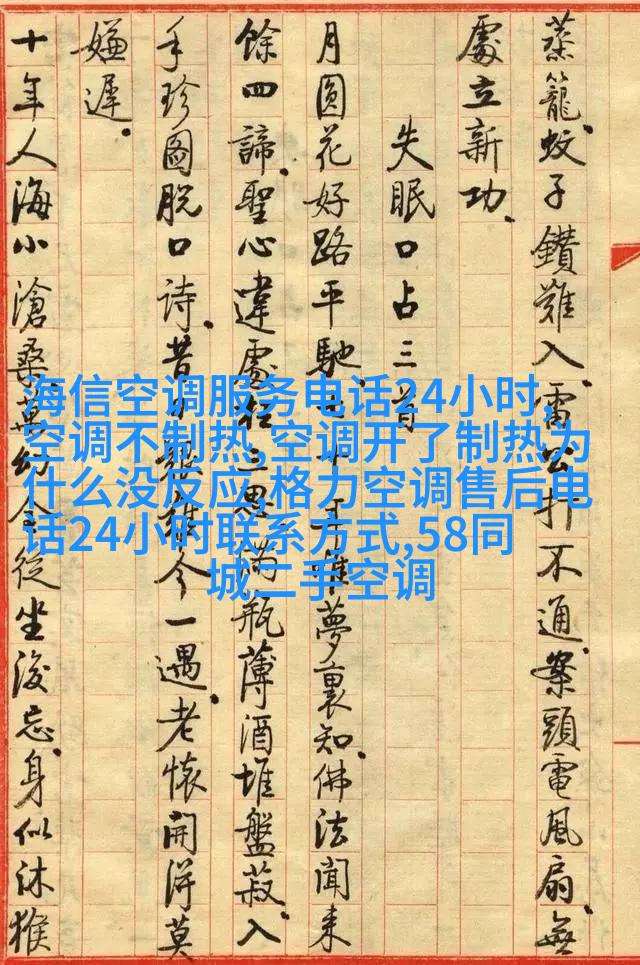 蒸籠。蚊子鑽難入。雷公打不通。案頭電風扇。無
處立新功。
失眠口占三首
月圓花好路平馳。年夢裏知。佛法聞來
餘四諦。聖心違處枉三思。滿瓶薄酒堆盤菽。入
手珍圖脫口詩。昔今一遇。老懷開得莫
嫌遲。
十年人海小滄桑。萬幻全從坐後忘。身似沐猴
海信空调服务电话24小时,
空调不制热,空调开了制热为
什么没反应,格力空调售后电
话24小时联系方式,58同
城二手空调